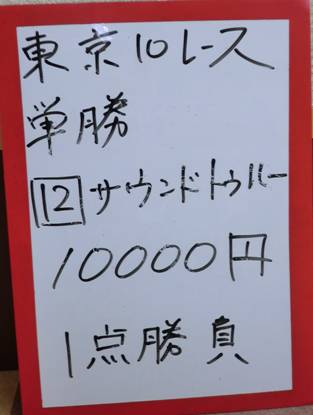 東京10レース
単勝
12 サウンドトゥルー
10000円
1点勝負